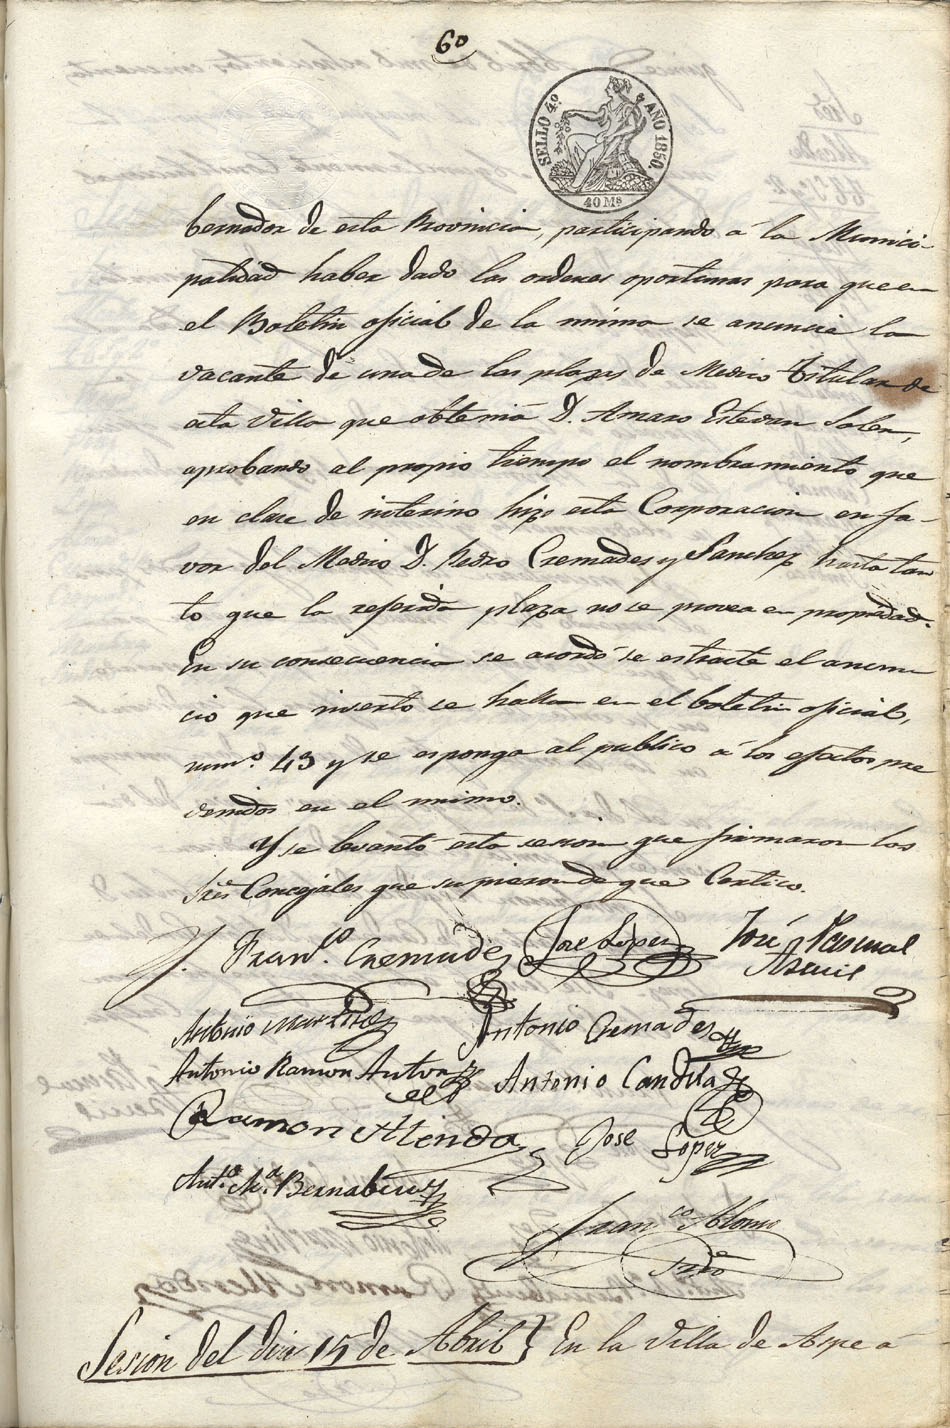 60
SELLO 4.º AÑO 1850.
40 Ms
bernador de esta Provincia, participando á la Munici-
palidad haber dado las ordenes oportunas para que en
el Boletin oficial de la misma se anuncie la
vacante de una de las plazas de Medico Titular de
esta Villa que obtenia D. Amaro Estevan Soler,
aprobando al propio tiempo el nombramiento que
en clase de interino hizo esta Corporacion en fa-
vor del Medico D. Pedro Cremades y Sanchez hasta tan
to que la referida plaza no se provea en propiedad.
En su consecuencia se acordó se estracte el anun
cio que inserto se halla en el boletin oficial,
num.º 43 y se esponga al publico á los efectos pre
venidos en el mismo.
Y se levantó esta sesion que firmaron los
Sres Concejales que supieron de que Certifico.
Fran.co Cremades José López José Pascual
Asencio
Antonio Martinez Antonio Cremades
Antonio Ramon Anton Antonio Candela
Ramon Alenda José Lopez
Ant.o M.a Bernabeu
Fran.co Alonso
Srio
Sesion del dia 15 de Abril} En la Villa de Aspe á